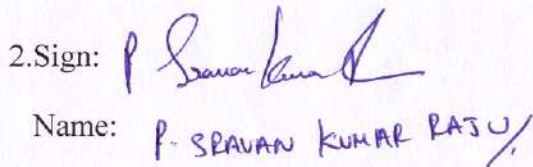 2.Sign: P Sravan Kumar R
Name: P. SRAVAN KUMAR RAJU